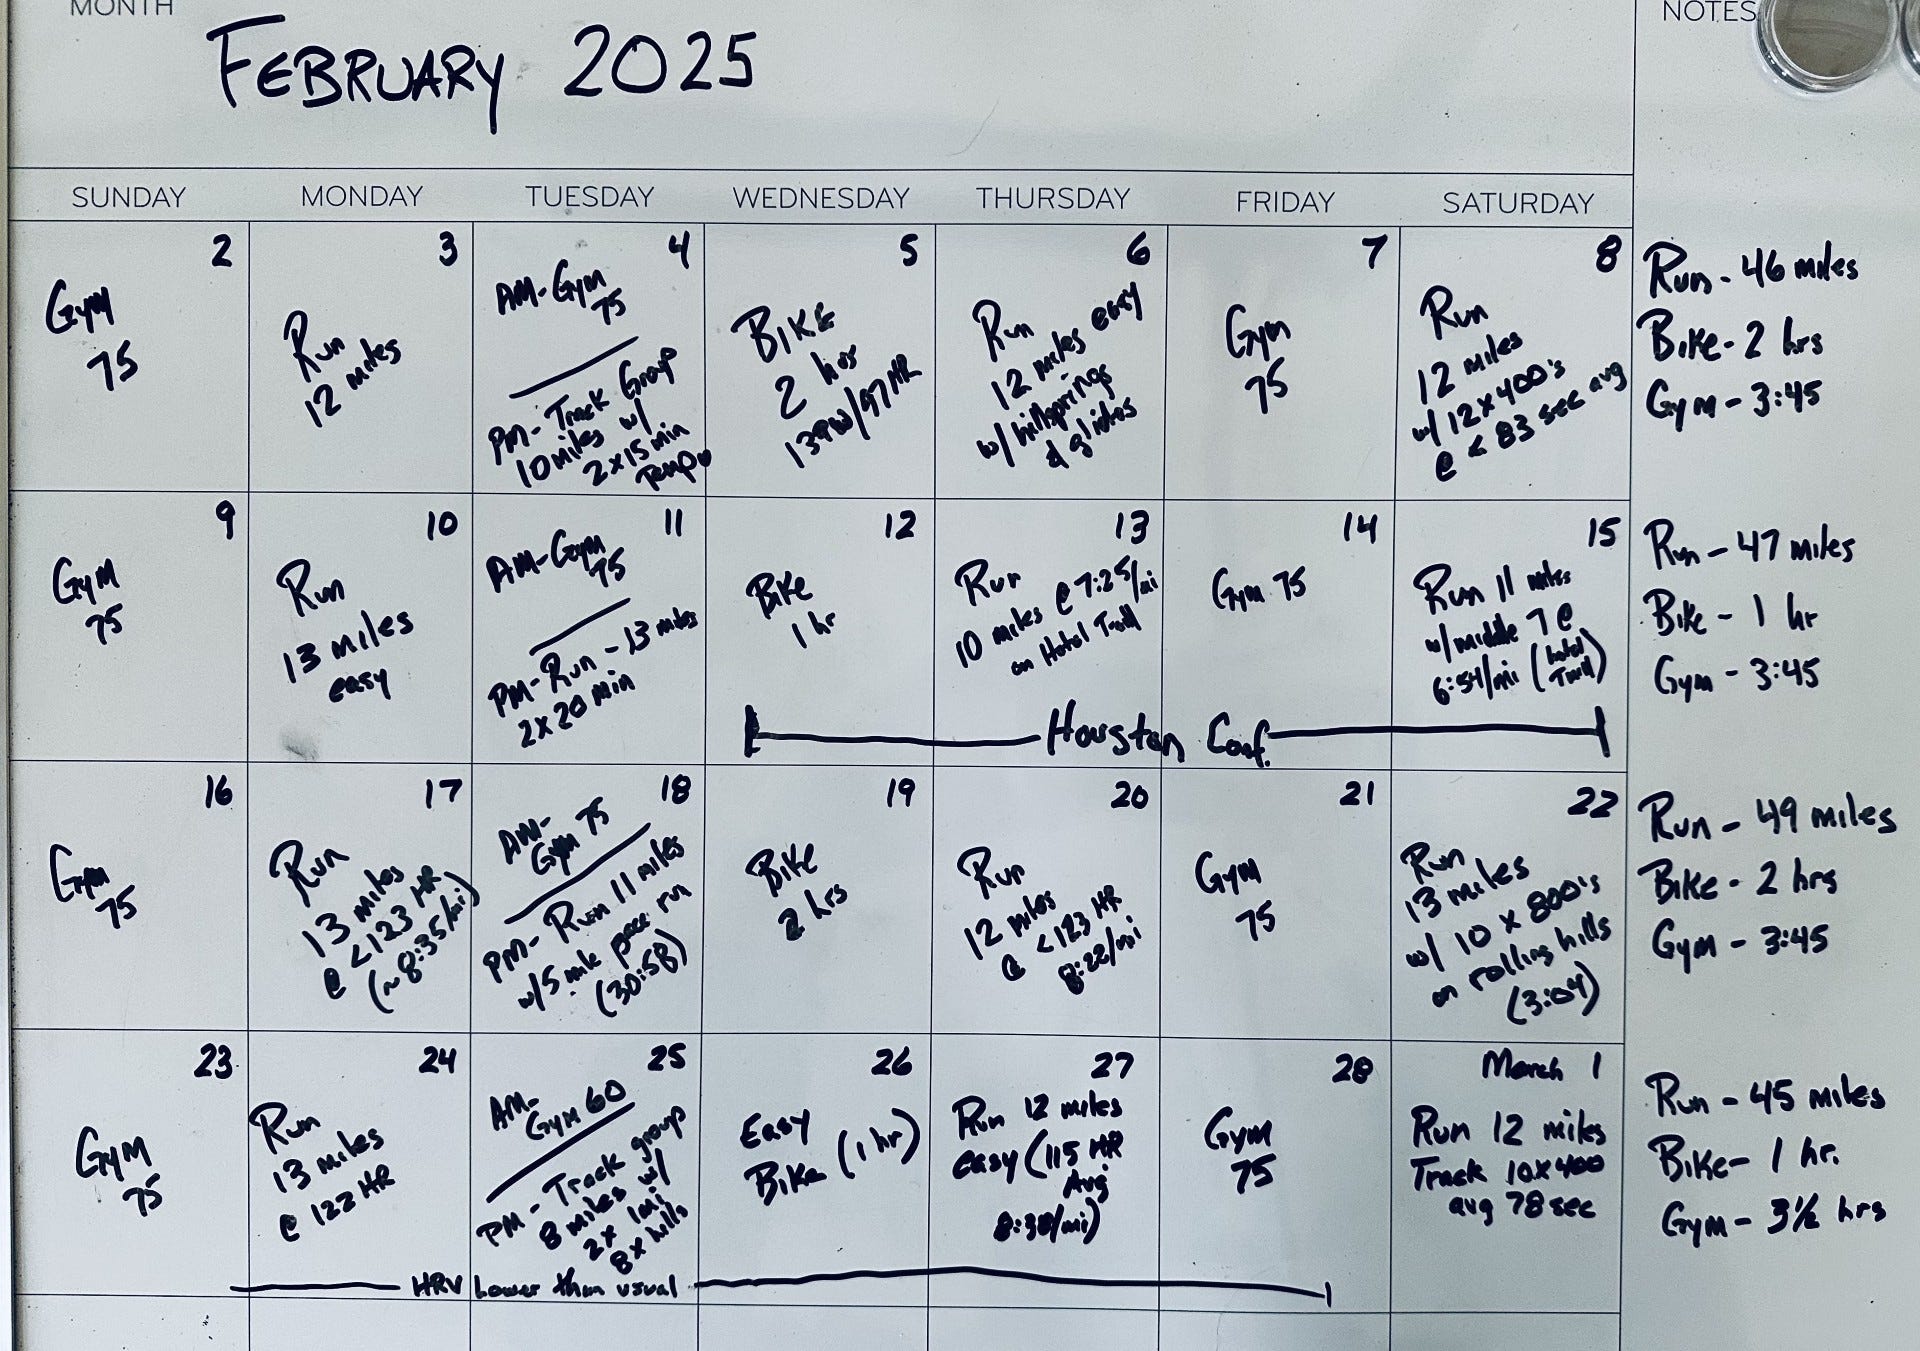 MONTH
NOTES
FEBRUARY 2025
SUNDAY MONDAY TUESDAY WEDNESDAY THURSDAY FRIDAY SATURDAY
2
Gym
75
3
Run
12 miles
4
AM-Gym
75
PM-Track Group
10 miles w/
2x15 min
Tempo
5
BIKE
2 hrs
139W/97HR
6
Run
12 miles easy
w/ hillsprings
& glides
7
Gym
75
8
Run
12 miles
w/ 12x400's
@ < 83 sec avg
Run - 46 miles
Bike - 2 hrs
Gym - 3:45
9
Gym
75
10
Run
13 miles
easy
11
AM-Gym
75
PM-Run - 13 miles
2x20 min
12
Bike
1 hr
13
Run
10 miles @ 7:25/mi
on Hotel Tmill
14
Gym 75
15
Run 11 miles
w/ middle 7 @
6:54/mi (hotel
Tmill)
Houston Conf.
Run - 47 miles
Bike - 1 hr
Gym - 3:45
16
Gym
75
17
Run
13 miles
@ <123 HR
(~8:35/mi)
18
AM-
Gym 75
PM- Run 11 miles
w/5 mile pace run
(30:58)
19
Bike
2 hrs
20
Run
12 miles
@ <123 HR
8:22/mi
21
Gym
75
22
Run
13 miles
w/ 10 x 800's
on rolling hills
(3:04)
Run - 49 miles
Bike - 2 hrs
Gym - 3:45
23
Gym
75
24
Run
13 miles
@ 122 HR
25
AM-
Gym 60
PM - Track group
8 miles w/
2x 1mi
8x hills
26
Easy
Bike (1 hr)
27
Run 12 miles
easy (115 HR
Avg
8:38/mi)
28
Gym
75
March 1
Run 12 miles
Track 10x400
avg 78 sec
HRV Lower than usual
Run - 45 miles
Bike - 1 hr.
Gym - 3½ hrs